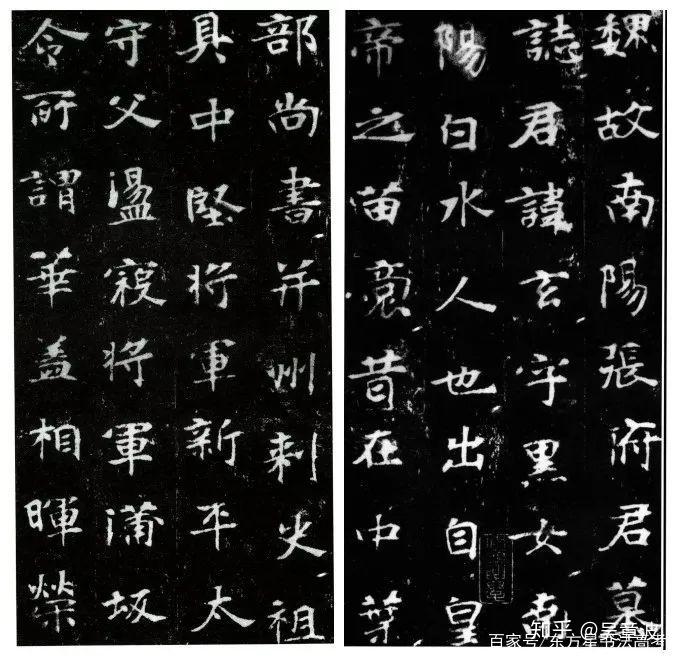 魏故南陽張府君墓
誌君諱玄字黑女南
陽白水人也出自皇
帝之苗裔昔在中葉
部尚書并州刺史祖
具中堅將軍新平太
守父盪寇將軍蒲坂
令所謂華蓋相暉榮
知乎 @吴章波
百家号/东方星书法高考